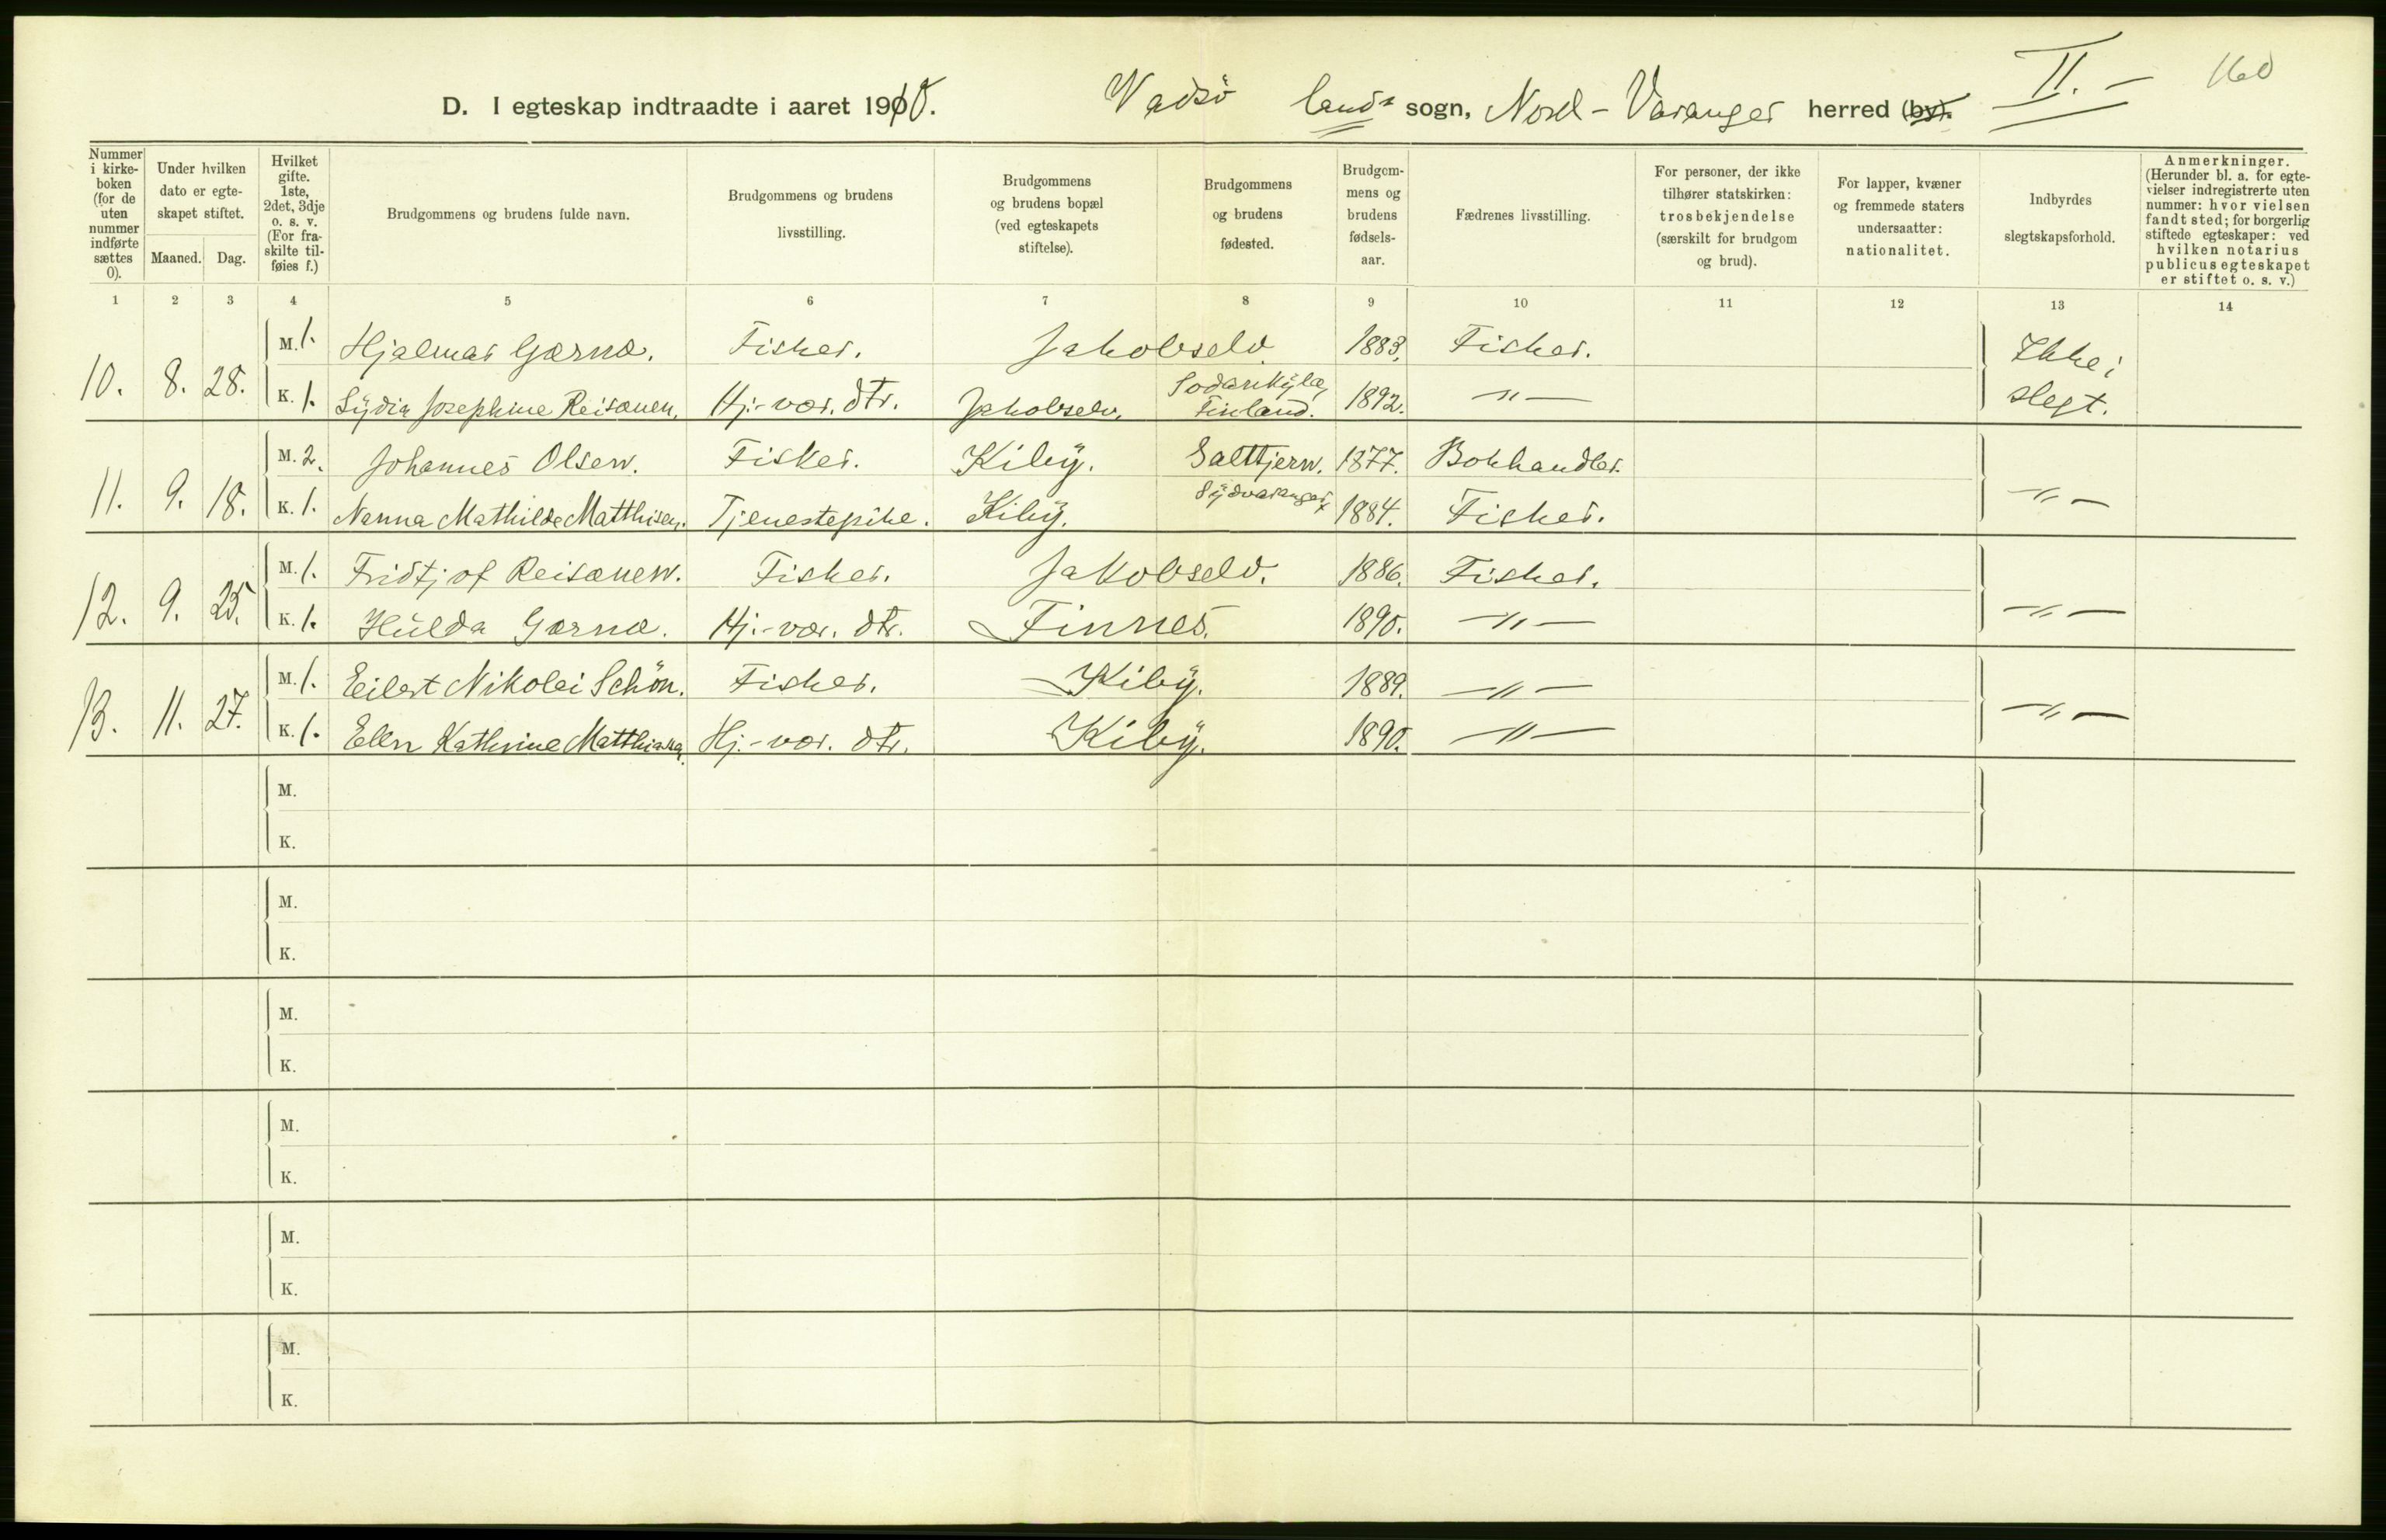 II. - 160
D. I egteskap indtraadte i aaret 1910. Vadsö lands sogn, Nord-Varanger herred (by).
Nummer i kirkeboken (for de uten nummer indførte sættes 0).
Under hvilken dato er egteskapet stiftet.
Maaned. Dag.
Hvilket gifte. 1ste, 2det, 3dje o. s. v. (For fraskilte tilføies f.)
Brudgommens og brudens fulde navn.
Brudgommens og brudens livsstilling.
Brudgommens og brudens bopæl (ved egteskapets stiftelse).
Brudgommens og brudens fødested.
Brudgommens og brudens fødselsaar.
Fædrenes livsstilling.
For personer, der ikke tilhører statskirken: trosbekjendelse (særskilt for brudgom og brud).
For lapper, kvæner og fremmede staters undersaatter: nationalitet.
Indbyrdes slegtskapsforhold.
Anmerkninger. (Herunder bl. a. for egtevielser indregistrerte uten nummer: hvor vielsen fandt sted; for borgerlig stiftede egteskaper: ved hvilken notarius publicus egteskapet er stiftet o. s. v.)
1 2 3 4 5 6 7 8 9 10 11 12 13 14
10. 8. 28. M. 1. Hjalmar Gærnæ. Fisker. Jakobselv. 1883. Fisker. Ikke i slegt.
K. 1. Lydia Josephine Reisænen. Hj.-vær. dtr. Jakobselv. Sodankylæ, Finland. 1892. -"-
11. 9. 18. M. 2. Johannes Olsen. Fisker. Kiby. Salttjern. 1877. Bokhandler. -"-
K. 1. Nanna Mathilde Matthisen. Tjenestepike. Kiby. Sydvaranger 1884. Fisker.
12. 9. 25. M. 1. Fridtjof Reisænen. Fisker. Jakobselv. 1886. Fisker. -"-
K. 1. Hulda Gærnæ. Hj.-vær. dtr. Finnes. 1890. -"-
13. 11. 27. M. 1. Eilert Nikolai Schön. Fisker. Kiby. 1889. -"- -"-
K. 1. Ellen Kathrine Hj.-vær. dtr. Kiby. 1890. -"-
M.
K.
M.
K.
M.
K.
M.
K.
M.
K.
M.
K.